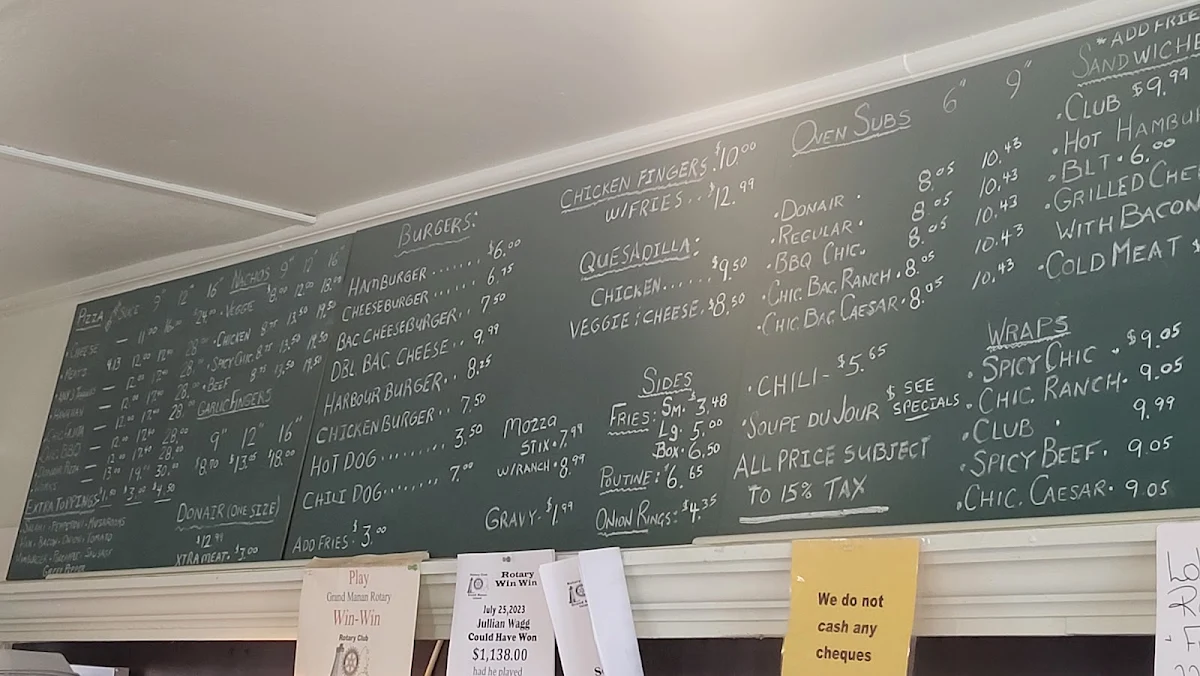 PIZZA
9" 12" 16"
CHEESE
MEATS
HAWAIIAN
DONAIR PIZZA
WORKS
EXTRA TOPPINGS
SALAMI · PEPPERONI · MUSHROOMS
HAM · BACON · ONION · TOMATO
GREEN PEPPER
NACHOS 9" 12" 16"
· VEGGIE $8.00 12.00 18.00
· CHICKEN 8.75 13.50 19.50
· SPICY CHIC. 8.75 13.50 19.50
· BEEF 8.75 13.50 19.50
GARLIC FINGERS
9" 12" 16"
$8.70 $13.05 $18.00
DONAIR (ONE SIZE)
$12.99
XTRA MEAT. $3.00
BURGERS:
HAMBURGER....... $6.00
CHEESEBURGER....... 6.75
BAC. CHEESEBURGER.. 7.50
DBL. BAC. CHEESE.. 9.99
HARBOUR BURGER.. 8.25
CHICKEN BURGER.. 7.50
HOT DOG........ 3.50
CHILI DOG....... 7.00
ADD FRIES: $3.00
MOZZA
STIX · 7.99
W/RANCH · 8.99
GRAVY - $1.99
CHICKEN FINGERS. $10.00
W/FRIES... $12.99
QUESADILLA:
CHICKEN...... $9.50
VEGGIE & CHEESE. $8.50
SIDES
FRIES: SM. $3.48
Lg. 5.00
BOX. 6.50
POUTINE: $6.65
ONION RINGS: $4.35
OVEN SUBS 6" 9"
· DONAIR · 8.05 10.43
· REGULAR · 8.05 10.43
· BBQ CHIC. 8.05 10.43
· CHIC. BAC. RANCH. 8.05 10.43
· CHIC. BAC. CAESAR. 8.05 10.43
· CHILI - $5.65
· SOUPE DU JOUR $ SEE SPECIALS
ALL PRICE SUBJECT
TO 15% TAX
*ADD FRIE
SANDWICHE
· CLUB $9.99
· HOT HAMBU
· BLT · 6.00
· GRILLED CHEE
WITH BACON
· COLD MEAT $
WRAPS
· SPICY CHIC. $9.05
· CHIC. RANCH. 9.05
· CLUB · 9.99
· SPICY BEEF. 9.05
· CHIC. CAESAR. 9.05
Play
Grand Manan Rotary
Win-Win
Rotary Club
Rotary
Win Win
July 25,2023
Jullian Wagg
Could Have Won
$1,138.00
had he played
We do not
cash any
cheques